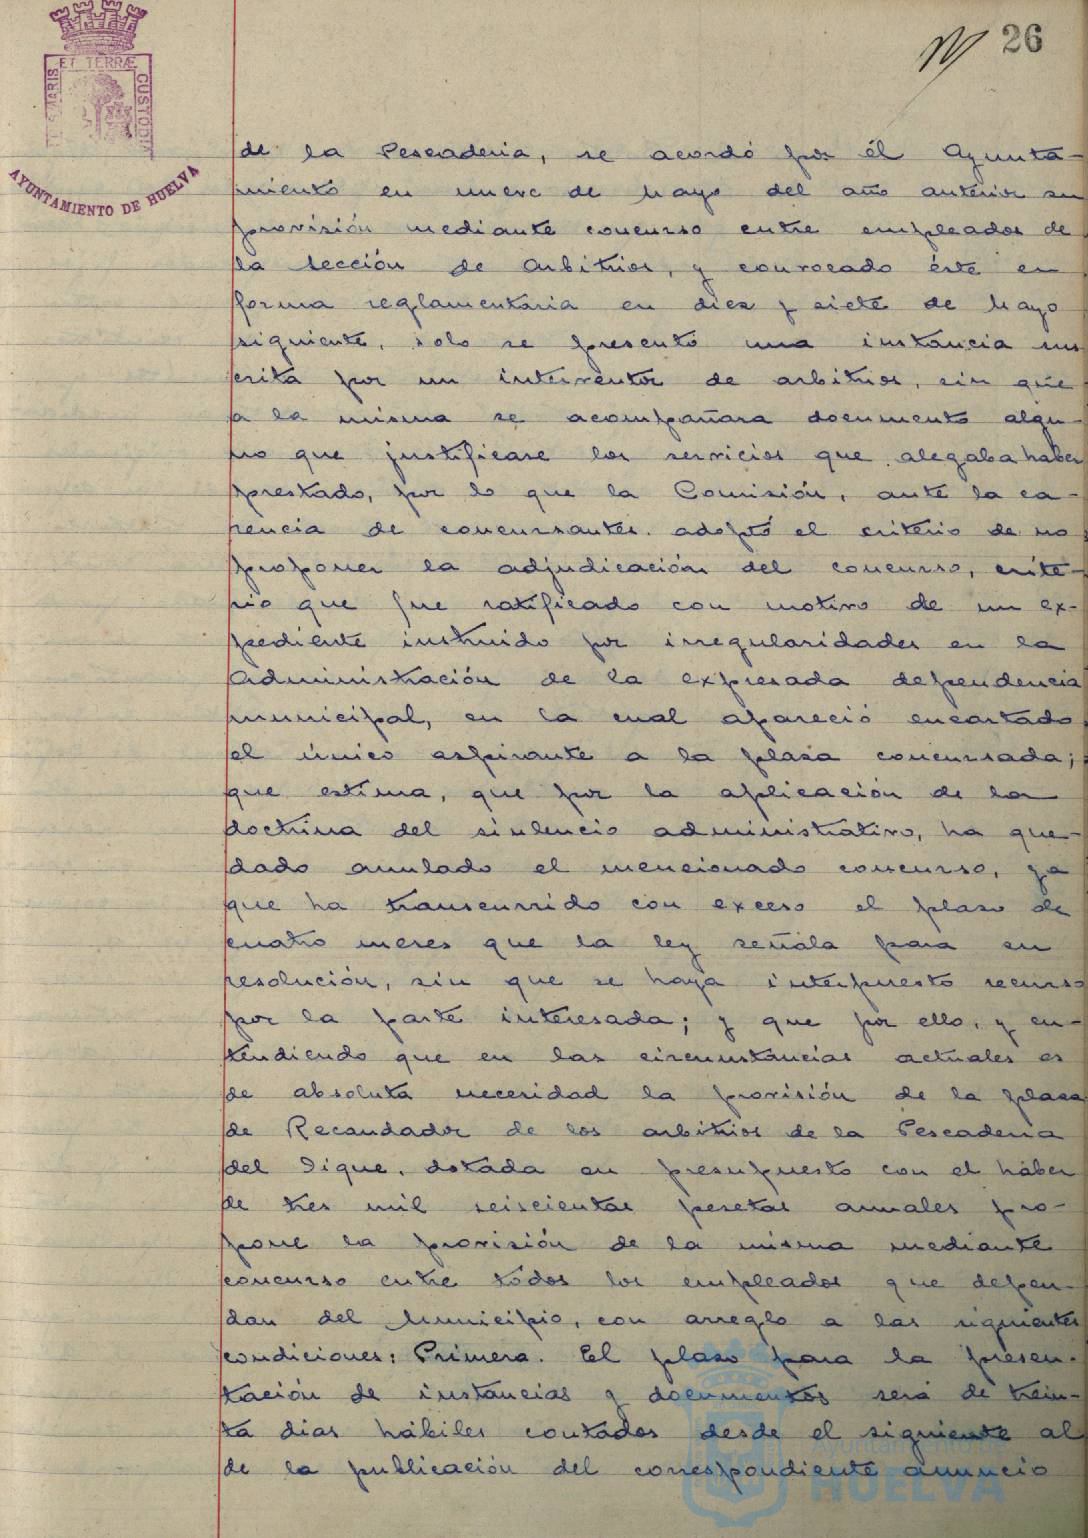 26
ET TERRÆ
MARIS
CUSTODI
AYUNTAMIENTO DE HUELVA
de la Pescaderia, se acordó por él Ayunta-
miento en nueve de Mayo del año anterior su
provisión mediante concurso entre empleados de
la Sección de Arbitrios, y convocado éste en
forma reglamentaria en diez y siete de Mayo
siguiente, solo se presentó una instancia sus
crita por un interventor de arbitrios, sin que
a la misma se acompañara documento algu-
no que justificase los servicios que alegaba haber
prestado, por lo que la Comisión, ante la ca-
rencia de concursantes. adoptó el criterio de no
proponer la adjudicación del concurso, crite-
rio que fue ratificado con motivo de un ex-
pediente instruido por irregularidades en la
Administración de la expresada dependencia
municipal, en la cual apareció encartado
el único aspirante a la plaza concursada;
que estima, que por la aplicación de la
doctrina del sinlencio administrativo, ha que-
dado anulado el mencionado concurso, ya
que ha transcurrido con exceso el plazo de
cuatro meses que la ley señala para su
resolución, sin que se haya interpuesto recurso
por la parte interesada; y que por ello, y en-
tendiendo que en las circunstancias actuales es
de absoluta necesidad la provisión de la plaza
de Recaudador de los arbitrios de la Pescaderia
del Dique, dotada en presupuesto con el haber
de tres mil seiscientas pesetas anuales pro-
pone la provisión de la misma mediante
concurso entre todos los empleados que depen-
dan del Municipio, con arreglo a las siguientes
condiciones: Primera. El plazo para la presen-
tación de instancias y documentos será de trein-
ta dias hábiles contados desde el siguiente al
de la publicación del correspondiente anuncio
Ayuntamiento
HUELVA